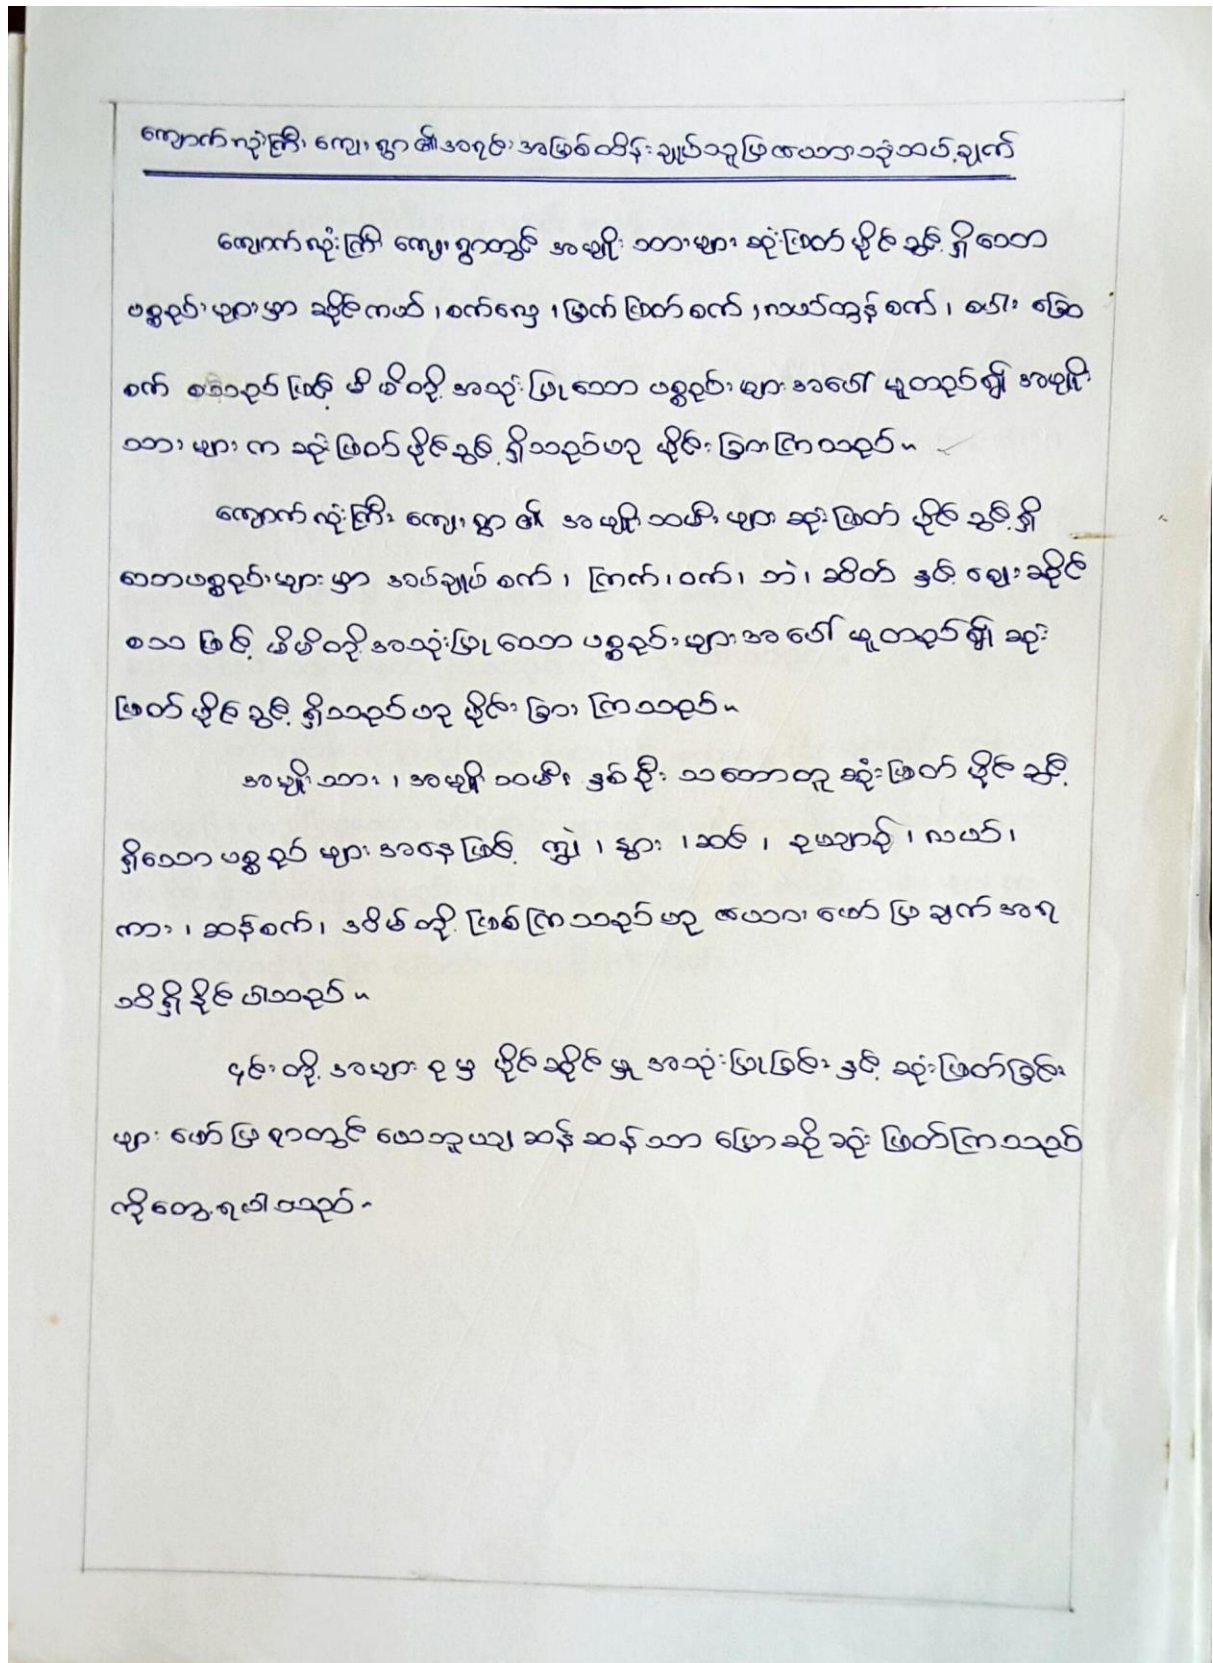 ကျောက်လုံးကြီး ကျေးရွာ၏အရင်းအမြစ်ထိန်းချုပ်သူပြဇယားသုံးသပ်ချက်
ကျောက်လုံးကြီး ကျေးရွာတွင် အမျိုးသားများ ဆုံးဖြတ်ပိုင်ခွင့်ရှိသော
ပစ္စည်းများမှာ ဆိုင်ကယ်၊ စက်လှေ၊ မြက်ဖြတ်စက်၊ လယ်ထွန်စက်၊ စပါးခြွေ
စက် စသည်ဖြင့် မိမိတို့အသုံးပြုသော ပစ္စည်းများအပေါ် မူတည်၍ အမျိုး
သားများက ဆုံးဖြတ်ပိုင်ခွင့်ရှိသည်ဟု ပိုင်းခြားကြသည်။
ကျောက်လုံးကြီး ကျေးရွာ၏ အမျိုးသမီးများ ဆုံးဖြတ်ပိုင်ခွင့်ရှိ
သောပစ္စည်းများမှာ အပ်ချုပ်စက်၊ ကြက်၊ ဝက်၊ ဘဲ၊ ဆိတ် နှင့် ဈေးဆိုင်
စသဖြင့် မိမိတို့အသုံးပြုသော ပစ္စည်းများအပေါ် မူတည်၍ ဆုံး
ဖြတ်ပိုင်ခွင့်ရှိသည်ဟု ပိုင်းခြားကြသည်။
အမျိုးသား၊ အမျိုးသမီး နှစ်ဦး သဘောတူ ဆုံးဖြတ်ပိုင်ခွင့်
ရှိသောပစ္စည်းများအနေဖြင့် ကျွဲ၊ နွား၊ ဆင်၊ ဥယျာဉ်၊ လယ်၊
ကား၊ ဆန်စက်၊ အိမ်တို့ဖြစ်ကြသည်ဟု ဇယားဖော်ပြချက်အရ
သိရှိနိုင်ပါသည်။
၎င်းတို့အများစုမှ ပိုင်ဆိုင်မှု အသုံးပြုခြင်းနှင့် ဆုံးဖြတ်ခြင်း
များ ဖော်ပြရာတွင် ယေဘူယျ ဆန်ဆန်သာ ပြောဆိုဆုံးဖြတ်ကြသည်
ကိုတွေ့ရပါသည်။